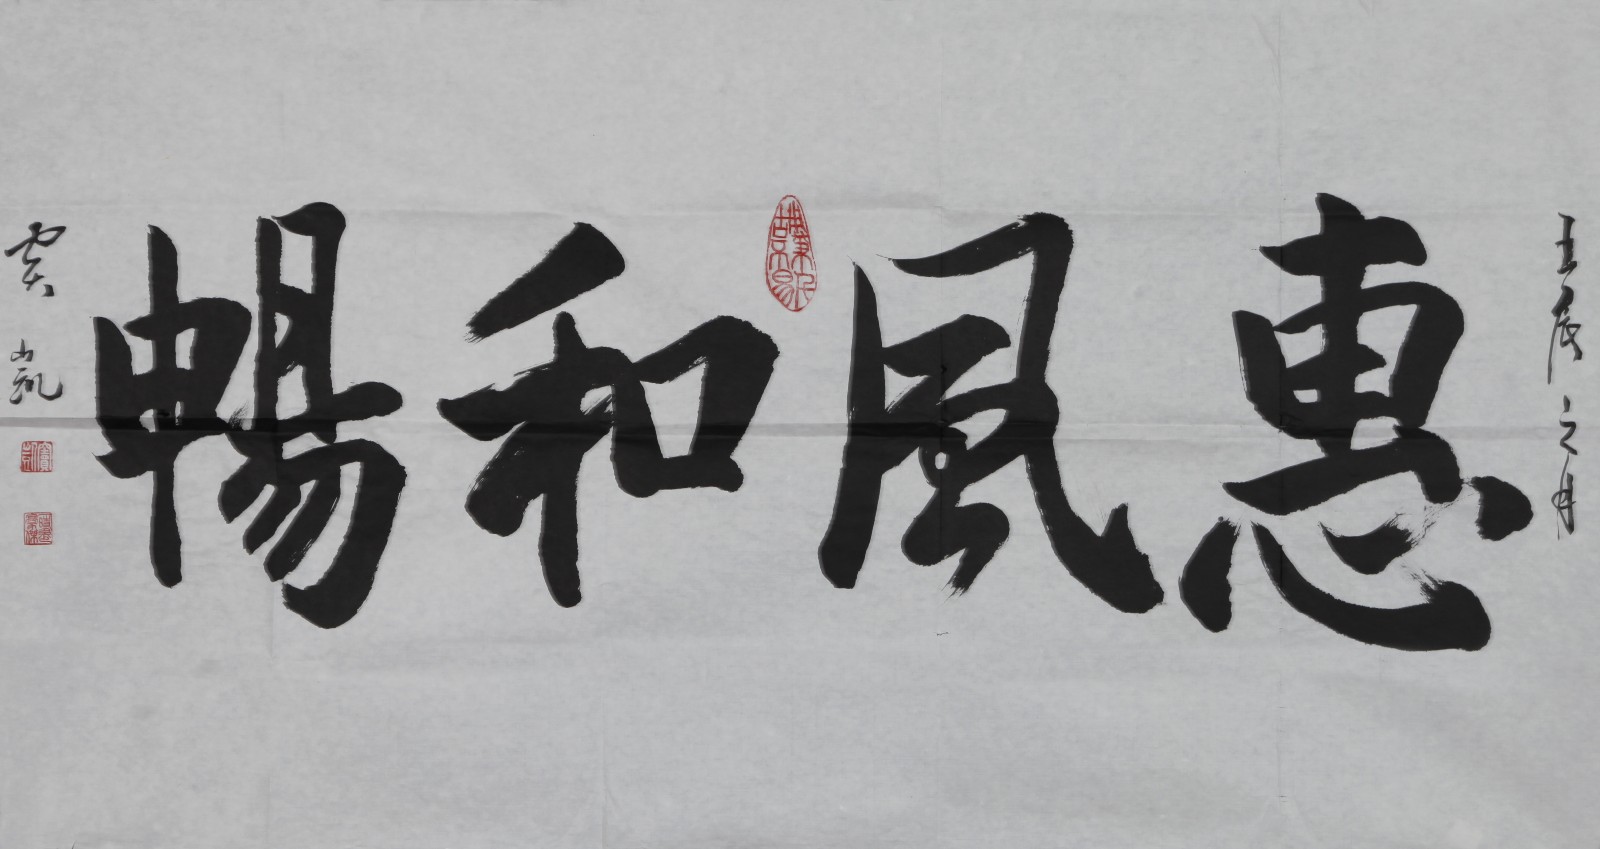 壬辰之月
惠風和暢
賓凱